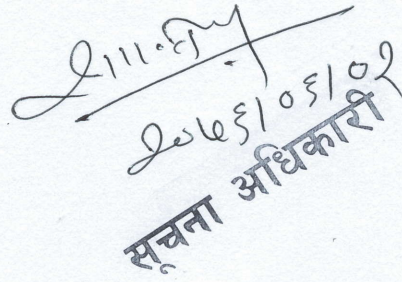 २०७६/०६/०२
सूचना अधिकारी